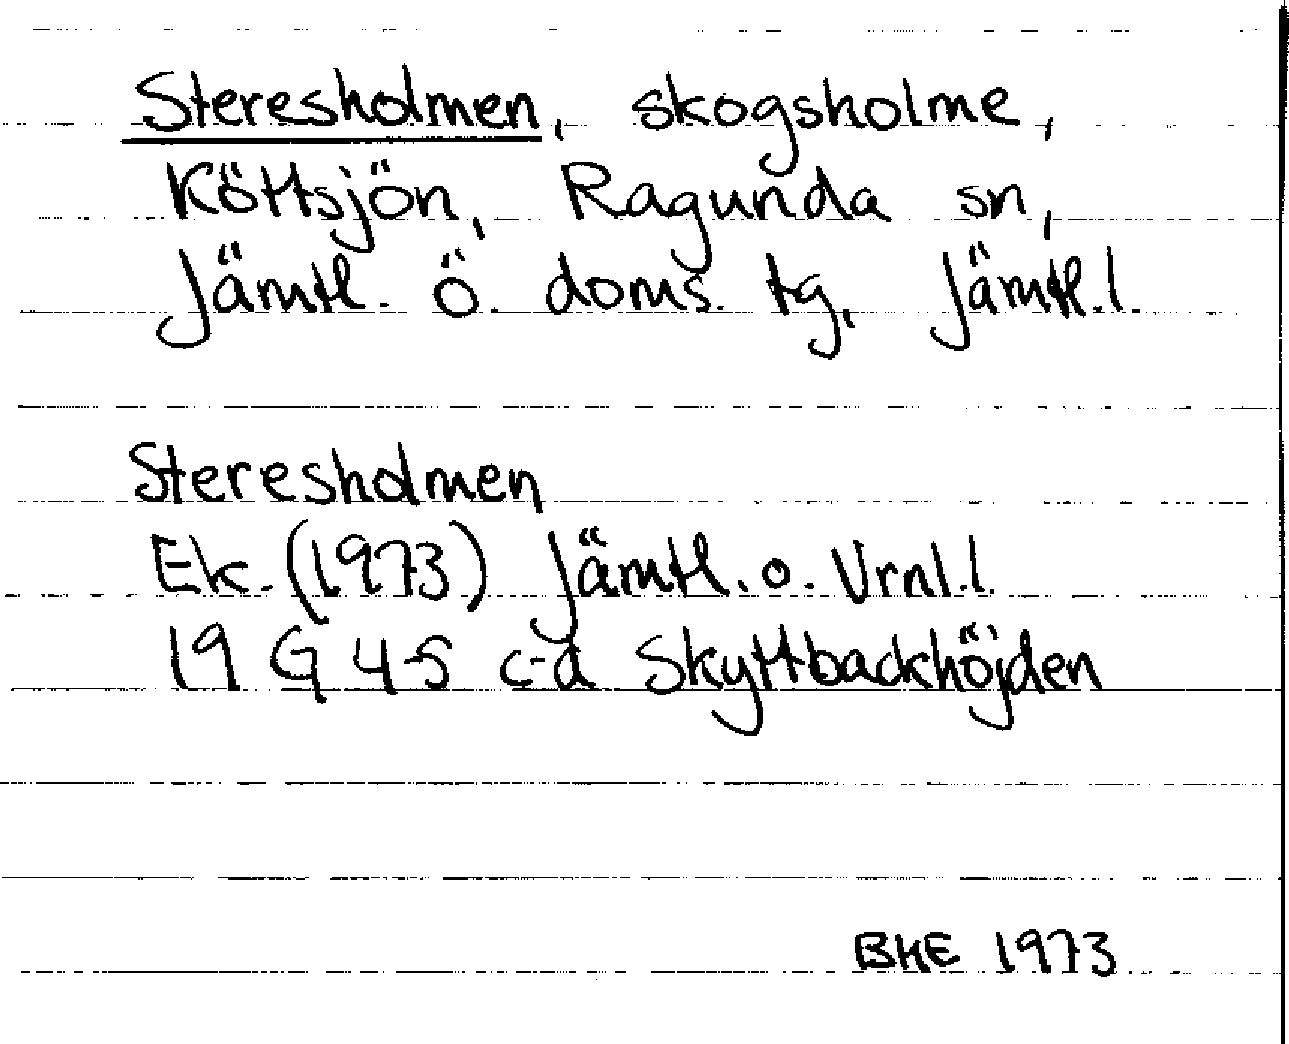 Steresholmen, skogsholme,
Köttsjön, Ragunda sn,
Jämtl. ö. doms. tg, Jämtl. l.
Steresholmen
Ek. (1973) Jämtl. o. Vrnl. l.
19 G 4-5 c-d Skyttbackhöjden
BHE 1973